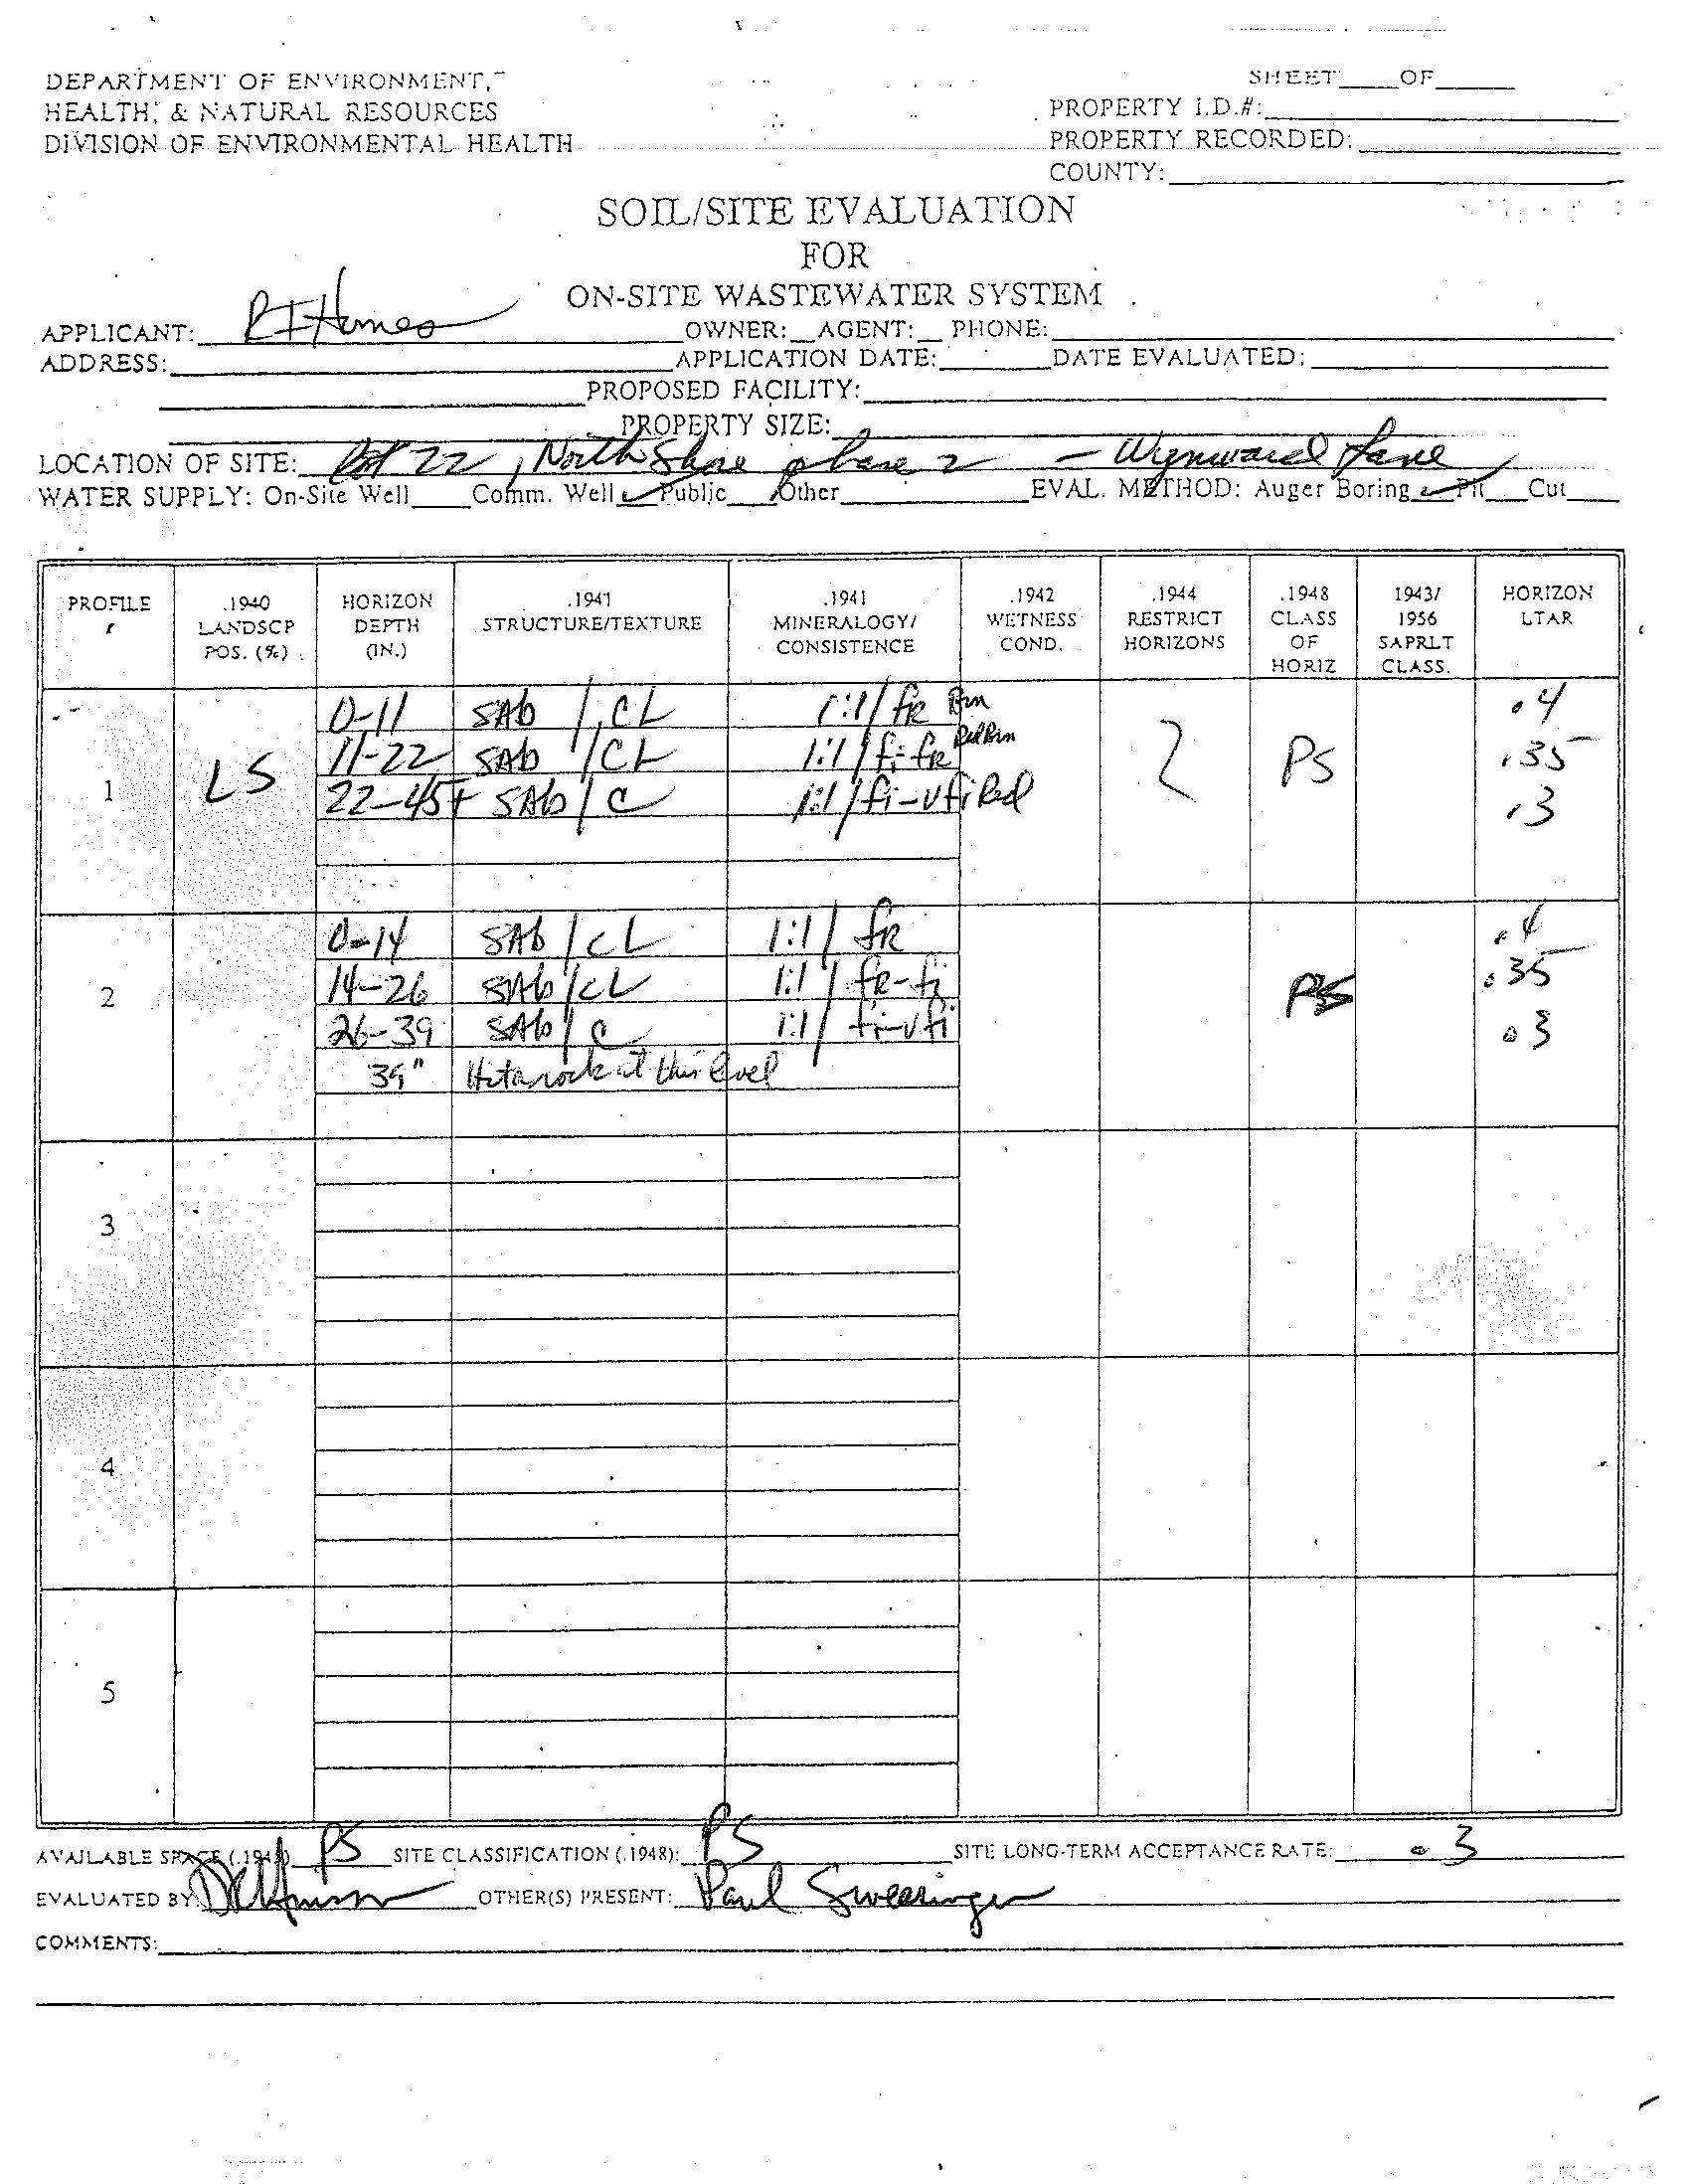 DEPARTMENT OF ENVIRONMENT,
HEALTH, & NATURAL RESOURCES
DIVISION OF ENVIRONMENTAL HEALTH
SHEET____OF____
PROPERTY I.D.#:
PROPERTY RECORDED:
COUNTY:
SOIL/SITE EVALUATION
FOR
ON-SITE WASTEWATER SYSTEM
APPLICANT: Homes OWNER:__AGENT:__ PHONE:
ADDRESS: APPLICATION DATE: DATE EVALUATED:
PROPOSED FACILITY:
PROPERTY SIZE:
LOCATION OF SITE: Lot 22, North Shore phase 2 - Wynward Lane
WATER SUPPLY: On-Site Well____Comm. Well ✓ Public___Other____ EVAL. METHOD: Auger Boring ✓ Pit___Cut____
PROFILE #
.1940 LANDSCP POS. (%)
HORIZON DEPTH (IN.)
.1941 STRUCTURE/TEXTURE
.1941 MINERALOGY/ CONSISTENCE
.1942 WETNESS COND.
.1944 RESTRICT HORIZONS
.1948 CLASS OF HORIZ
1943/ 1956 SAPRLT CLASS.
HORIZON LTAR
0-11 SAb / CL 1:1/ fR Brn .4
11-22 SAb / CL 1:1/ fi-fR Red Brn .35
1 LS 22-45+ SAb / C 1:1/ fi-vfi Red PS .3
0-14 SAb / CL 1:1/ fR .4
2 14-26 SAb / CL 1:1/ fR-fi PS .35
26-39 SAb / C 1:1/ fi-vfi .3
39" Hit a rock at this level
3
4
5
AVAILABLE SPACE (.1945) PS SITE CLASSIFICATION (.1948): PS SITE LONG-TERM ACCEPTANCE RATE: .3
EVALUATED BY: OTHER(S) PRESENT: Paul Swearingen
COMMENTS: